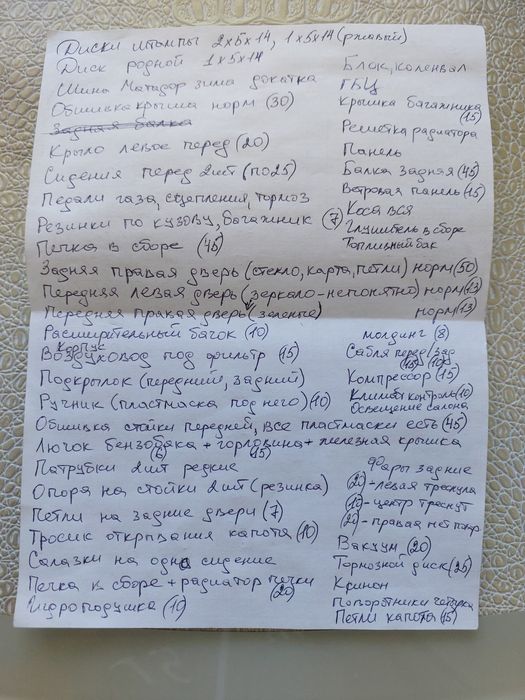 Диски штампы 2х5х14, 1х5х14 (ржовый)
Диск родной 1х5х14
Блок, коленвал
Шина Матадор зима докатка
ГБЦ
Обшивка крыша норм (30)
Крышка багажника (15)
Задняя балка
Решетка радиатора
Крыло левое перед (20)
Панель
Сидения перед 2шт (по 25)
Балка задняя (45)
Педали газа, сцепления, тормоз
Ветровая панель (15)
Резинки по кузову, багажник (7)
Коса вся
Глушитель в сборе
Печка в сборе (45)
Топливный бак
Задняя правая дверь (стекло, карта, петли) норм (50)
Передняя левая дверь (зеркало-непонятно) норм (13)
Передняя правая дверь (зеленые) норм (13)
Расширительный бачок (10)
молдинг (8)
Корпус
Воздуховод под фильтр (15)
Сабля перед/зад
(15) (10)
Подкрылок (передний, задний)
Компрессор (15)
Ручник (пластмаска под него) (10)
Климат контроль (10)
Освещение салона
Обшивка стойки передней, все пластмаски есть (45)
Лючок бензобака + горловина + железная крышка
(6) (15)
Патрубки 2шт редкие
Фары задние
Опора на стойки 2шт (резинка)
(20)-левая треснула
(10)-центр треснут
Петли на задние двери (7)
(20)-правая нет патр
Тросик открывания капота (10)
Вакуум (20)
Салазки на одно сидение
Тормозной диск (25)
Печка в сборе + радиатор печки (20)
Поворотники четверка
Гидроподушка (10)
Петли капота (15)